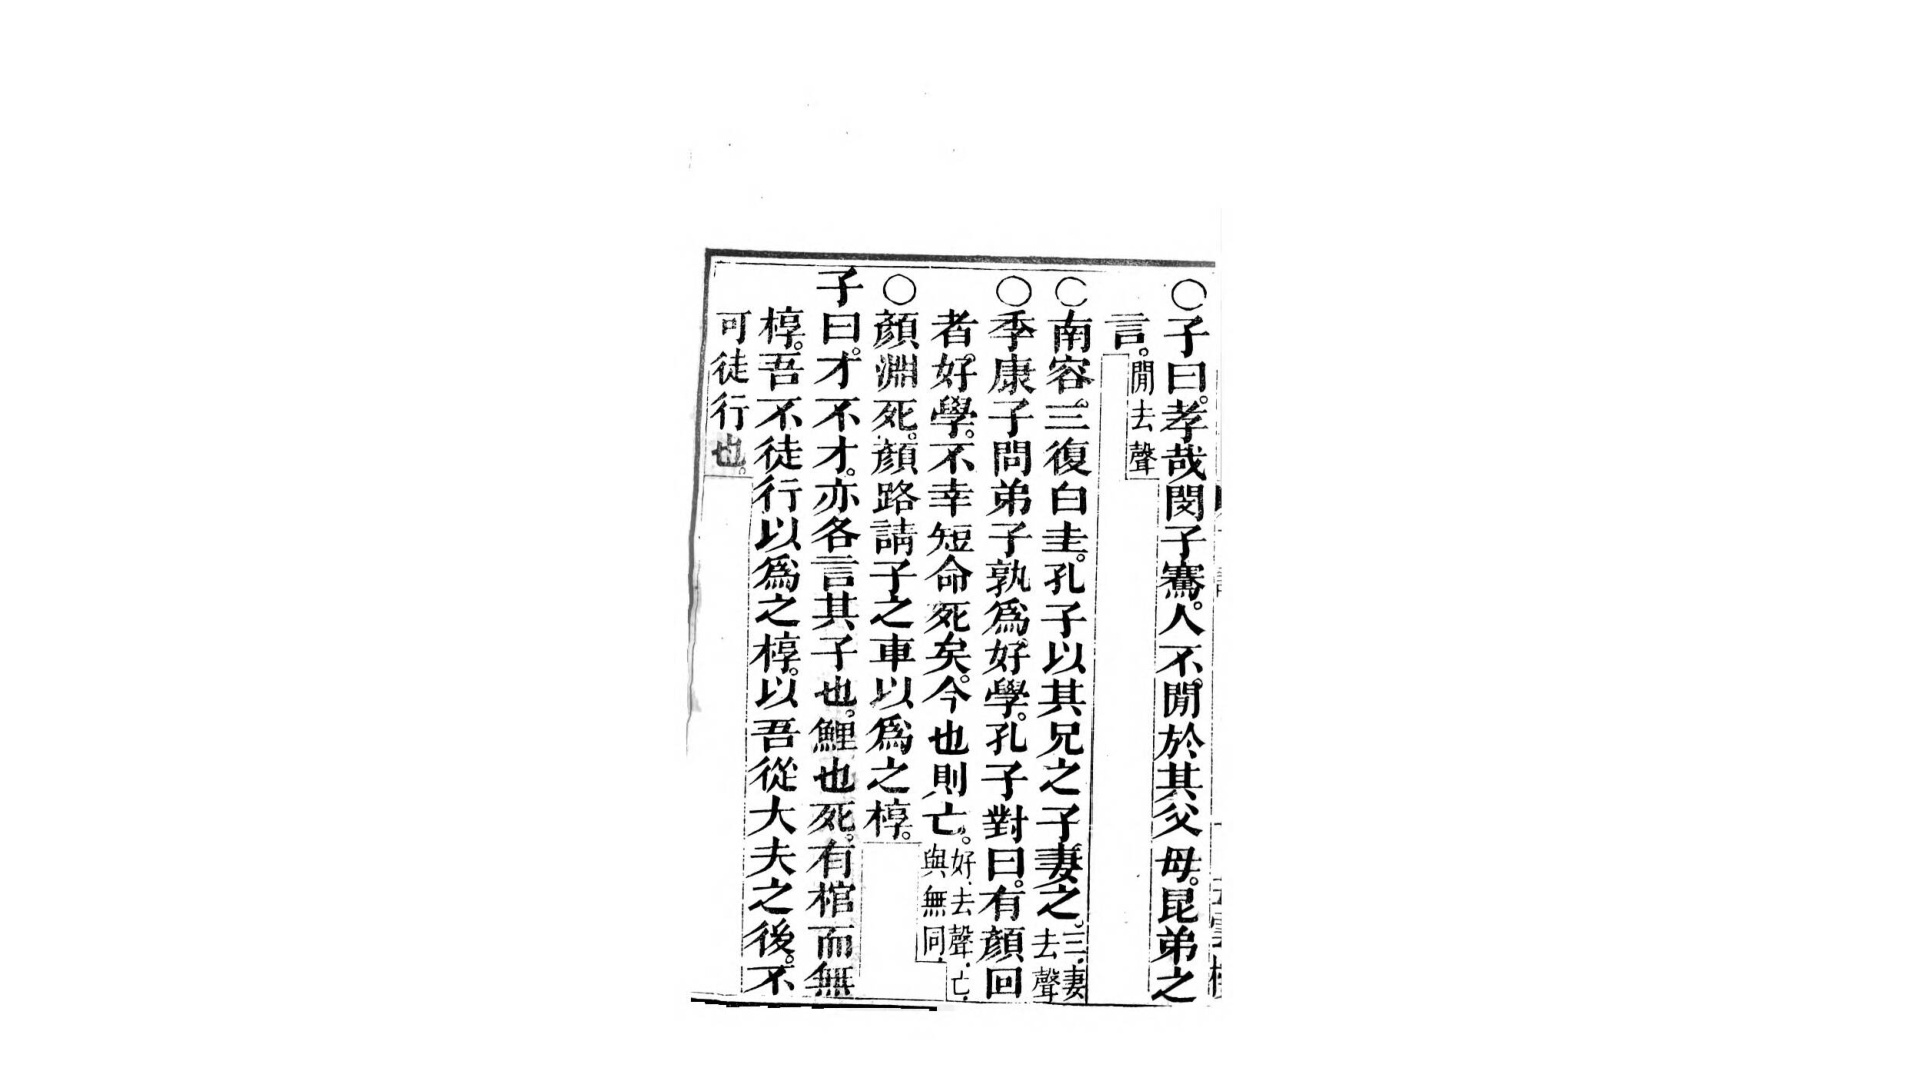 ○子曰。孝哉閔子騫。人不閒於其父母。昆弟之
言。閒去聲
○南容。三復白圭。孔子以其兄之子妻之。三、妻去聲
○季康子問弟子孰爲好學。孔子對曰。有顏回
者。好學。不幸短命死矣。今也則亡。好、去聲、亡、與無同、
○顏淵死。顏路請子之車以爲之椁。
子曰。才不才。亦各言其子也。鯉也死。有棺而無
椁。吾不徒行以爲之椁。以吾從大夫之後。不
可徒行也。